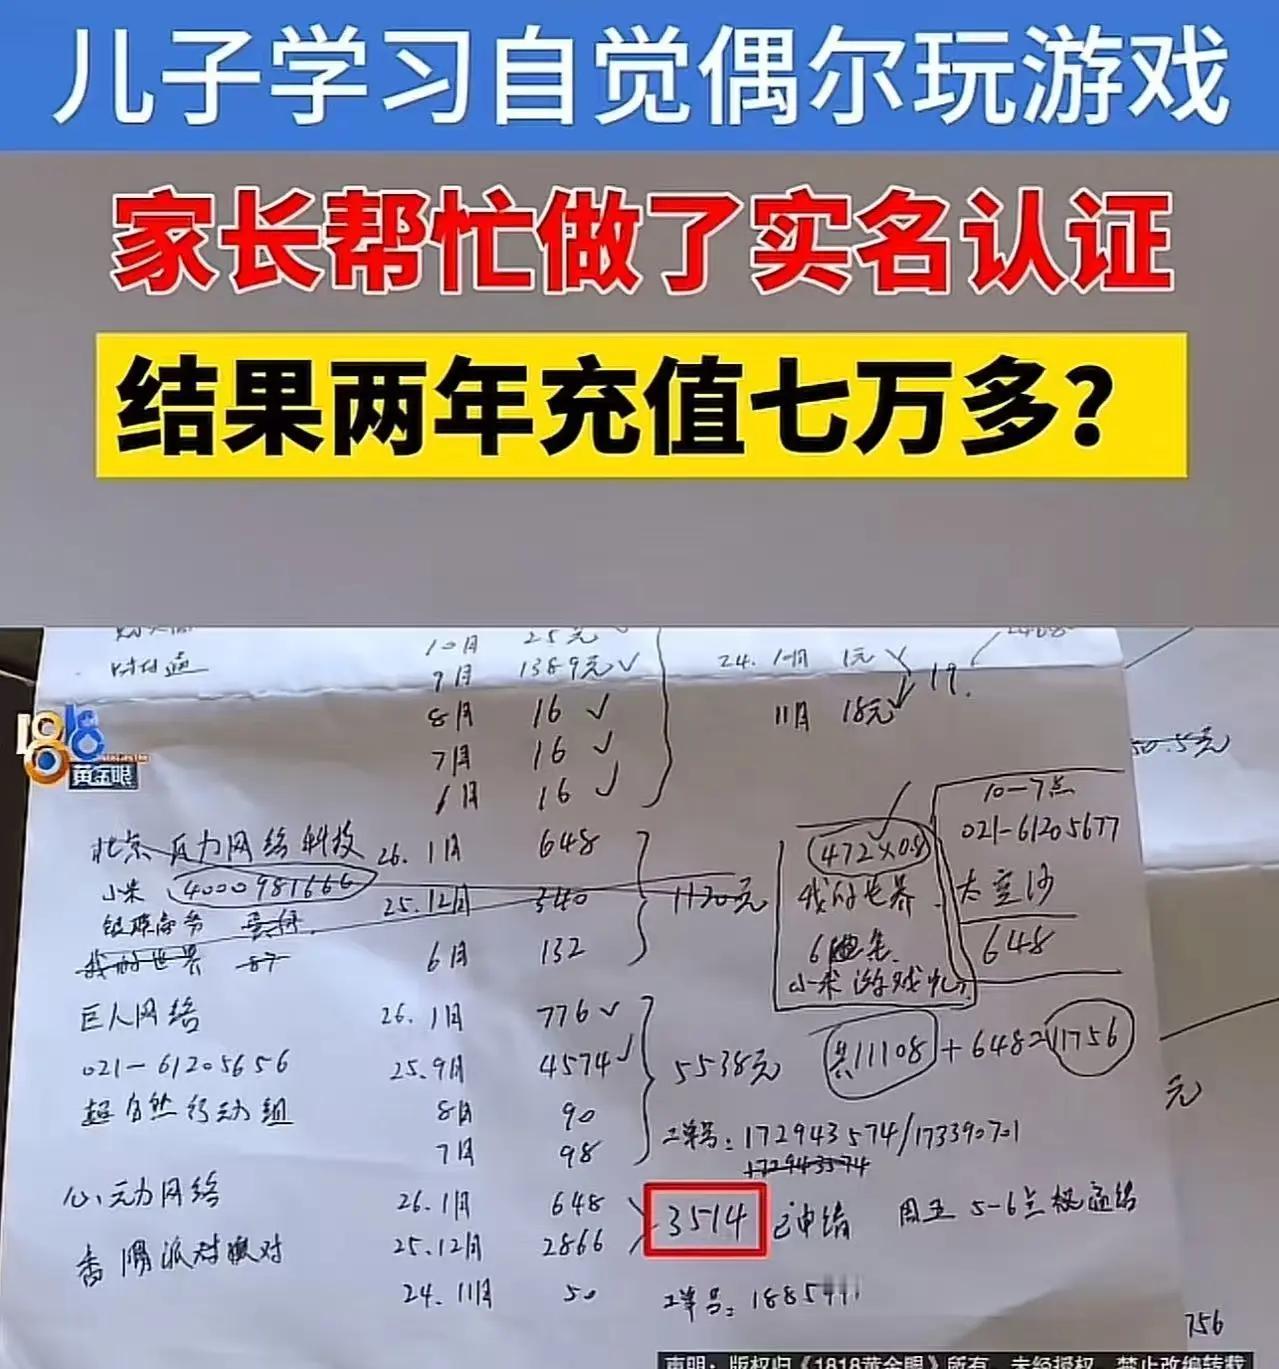 儿子学习自觉偶尔玩游戏
家长帮忙做了实名认证
结果两年充值七万多?
10月 25元
9月 1389元✓ 24. 10月 1元
8月 16 ✓ 11月 18元 19.
7月 16 ✓
6月 16 ✓
1818
黄金眼
50.5元
10-7点
021-61205677
太空沙
648
北京瓦力网络科技 26. 1月 648
小米 4000981666 25.12月 340 1120元
6月 132
我的世界 87
472×0.8
我的世界
小米游戏
巨人网络 26. 1月 776 ✓
021-61205656 25.9月 4574 ✓ 5538元 共11108+648=11756
超自然行动组 8月 90
7月 98 工单号: 172943574/173390701
172943574
心动网络 26.1月 648
3514 已申请 周五 5-6点
香肠派对 25.12月 2866
24. 11月 50 工单号:
元
756
声明:版权归《1818黄金眼》所有,未经授权,禁止改编转载